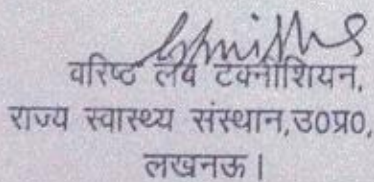 वरिष्ठ लैब टेक्नीशियन,
राज्य स्वास्थ्य संस्थान,उ0प्र0,
लखनऊ।